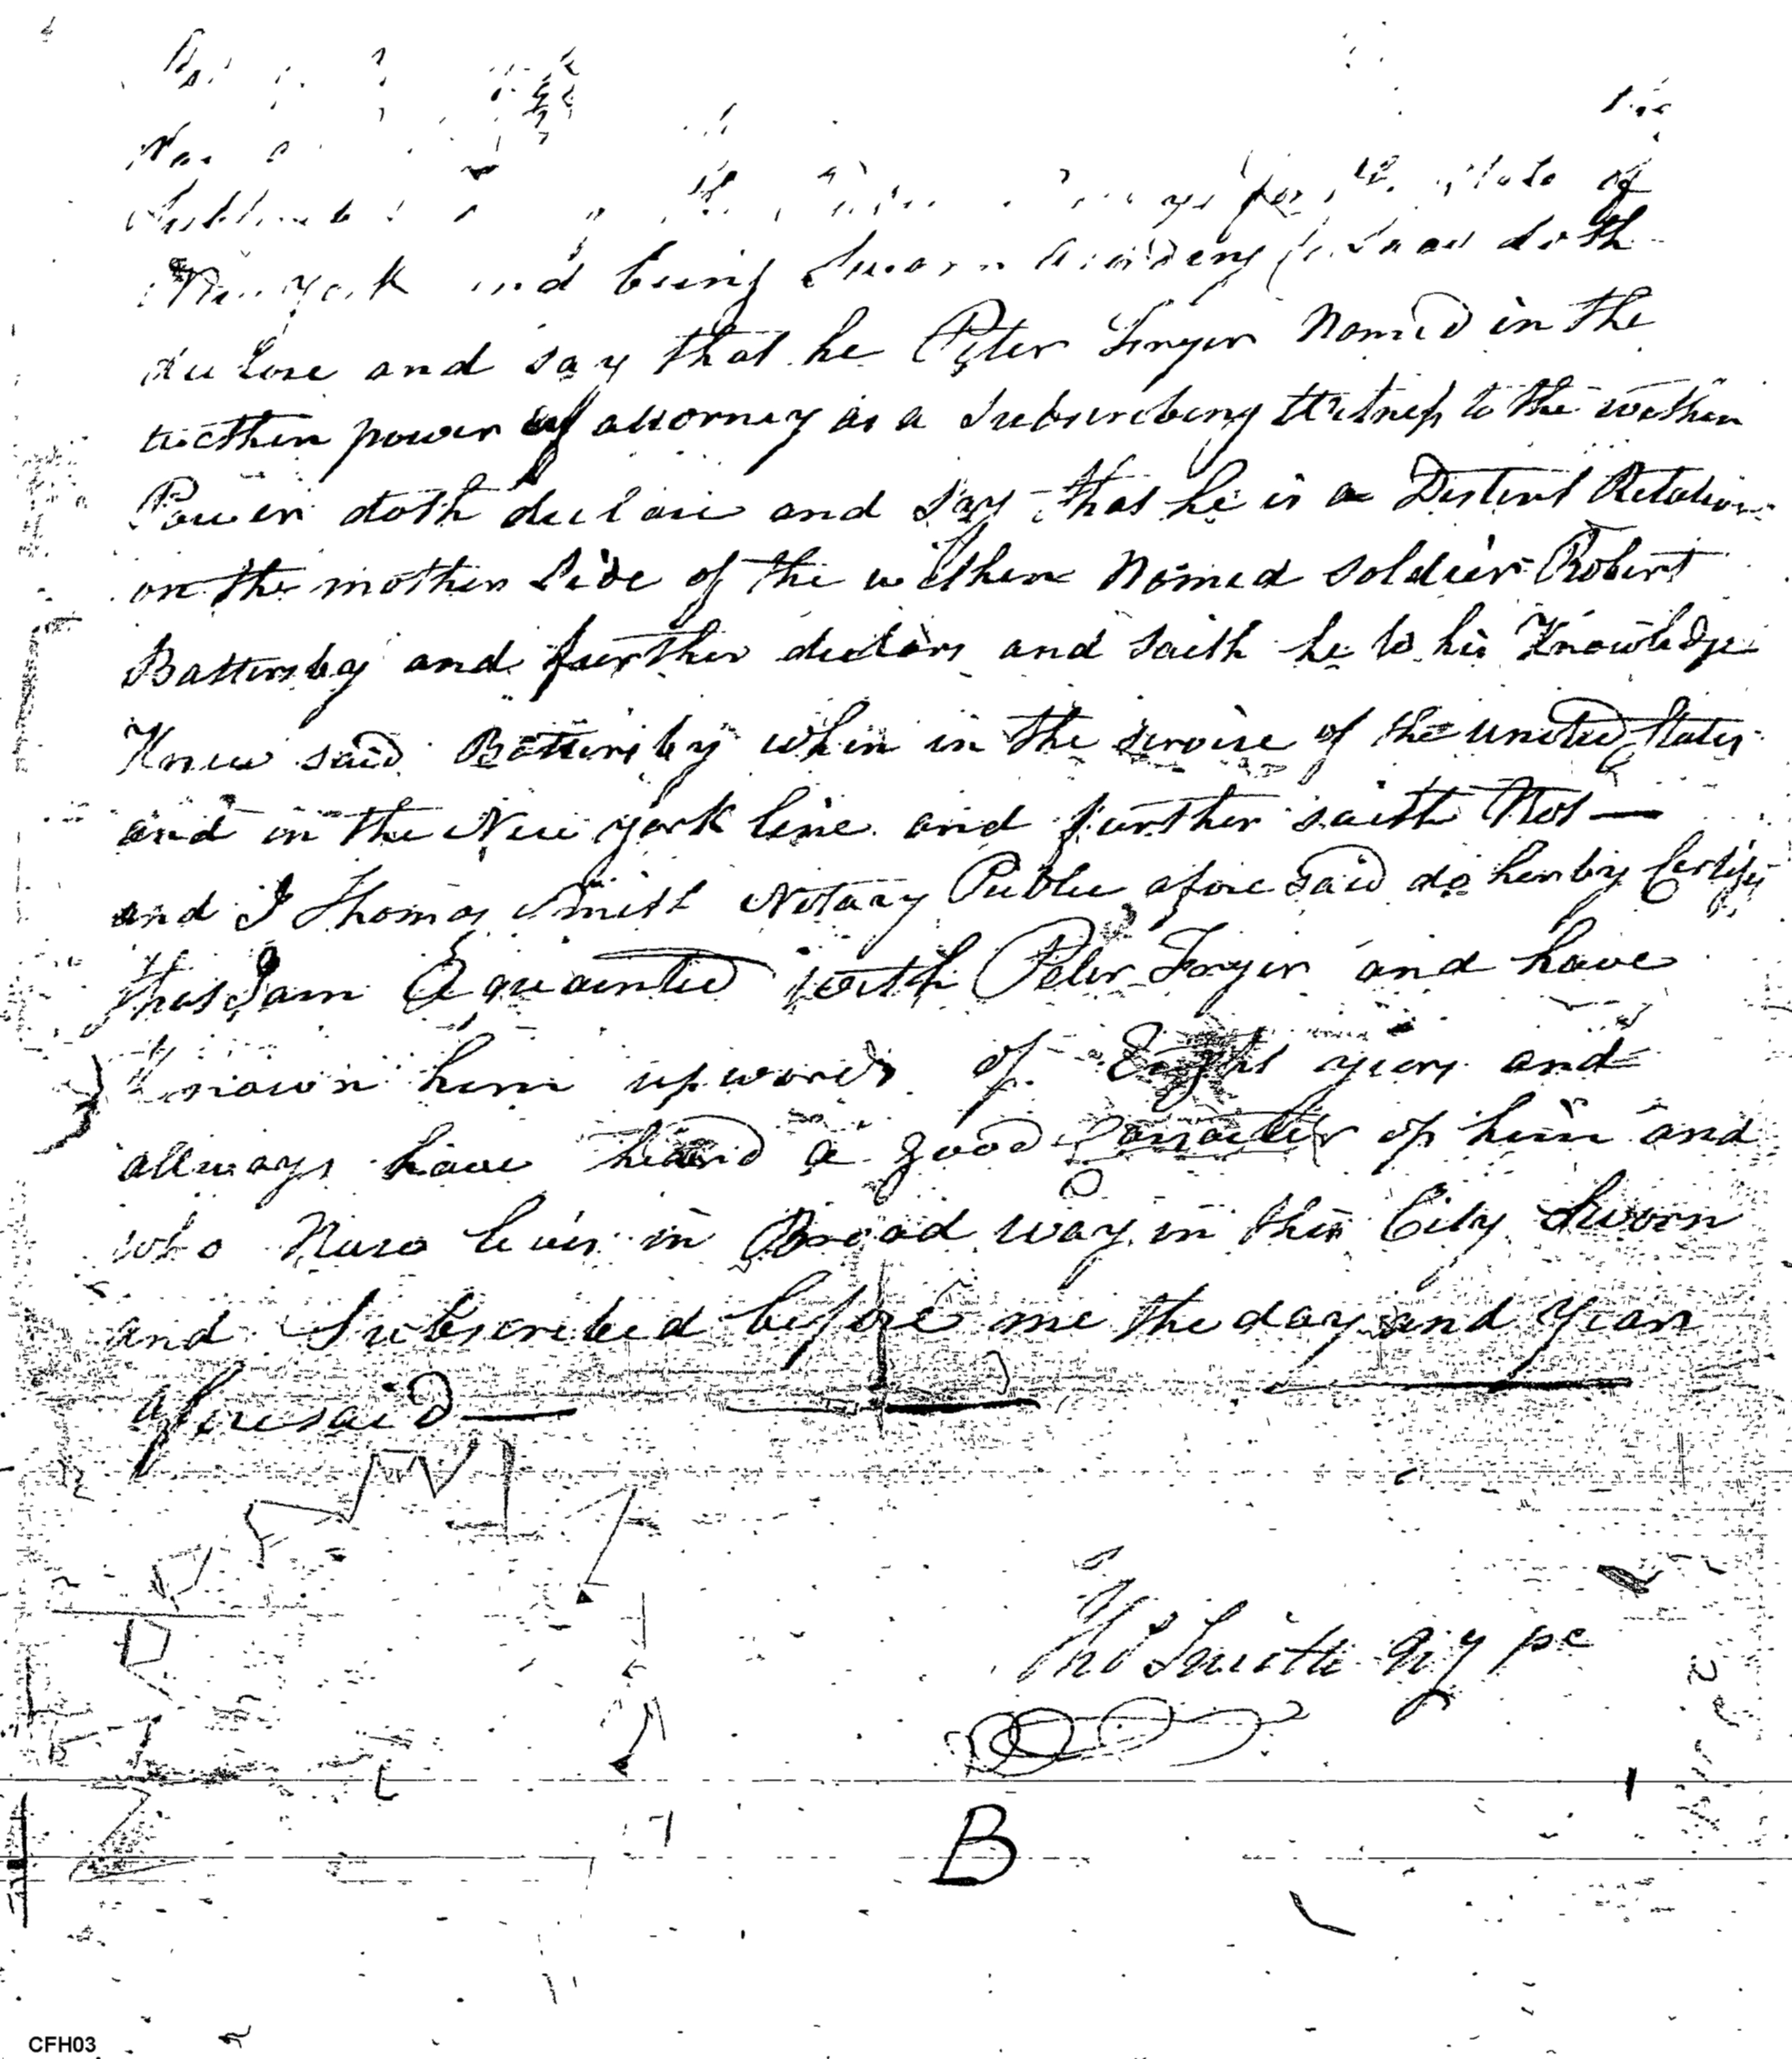 of
New york and being Sworn According to Law doth
declare and say that he Peter Fryer Named in the
within power of attorney as a Subscribing Witness to the within
Power doth declare and Say that he is a Distent Relation
on the mother Side of the within Nomed soldier Robert
Battersby and further declars and saith he to his Knowledge
Knew said Battersby when in the servise of the united States
and in the New york line and further saith Not —
and I Thomas Smith Notary Public afore Said do herby Certify
that I am Aquainted with Peter Fryer and have
Known him upwords of Eight years and
allways have heard a good Carracter of him and
who Now lives in Broad way in this City Sworn
and Subscribed before me the day and year
aforesaid —
Tho Smith
B
CFH03